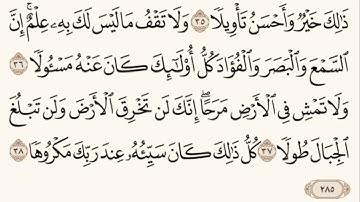 ذَٰلِكَ خَيْرٌ وَأَحْسَنُ تَأْوِيلًا ٣٥ وَلَا تَقْفُ مَا لَيْسَ لَكَ بِهِۦ عِلْمٌ ۚ إِنَّ
السَّمْعَ وَالْبَصَرَ وَالْفُؤَادَ كُلُّ أُو۟لَٰٓئِكَ كَانَ عَنْهُ مَسْـُٔولًا ٣٦
وَلَا تَمْشِ فِي الْأَرْضِ مَرَحًا ۖ إِنَّكَ لَن تَخْرِقَ الْأَرْضَ وَلَن تَبْلُغَ
الْجِبَالَ طُولًا ٣٧ كُلُّ ذَٰلِكَ كَانَ سَيِّئُهُۥ عِندَ رَبِّكَ مَكْرُوهًا ٣٨
٢٨٥